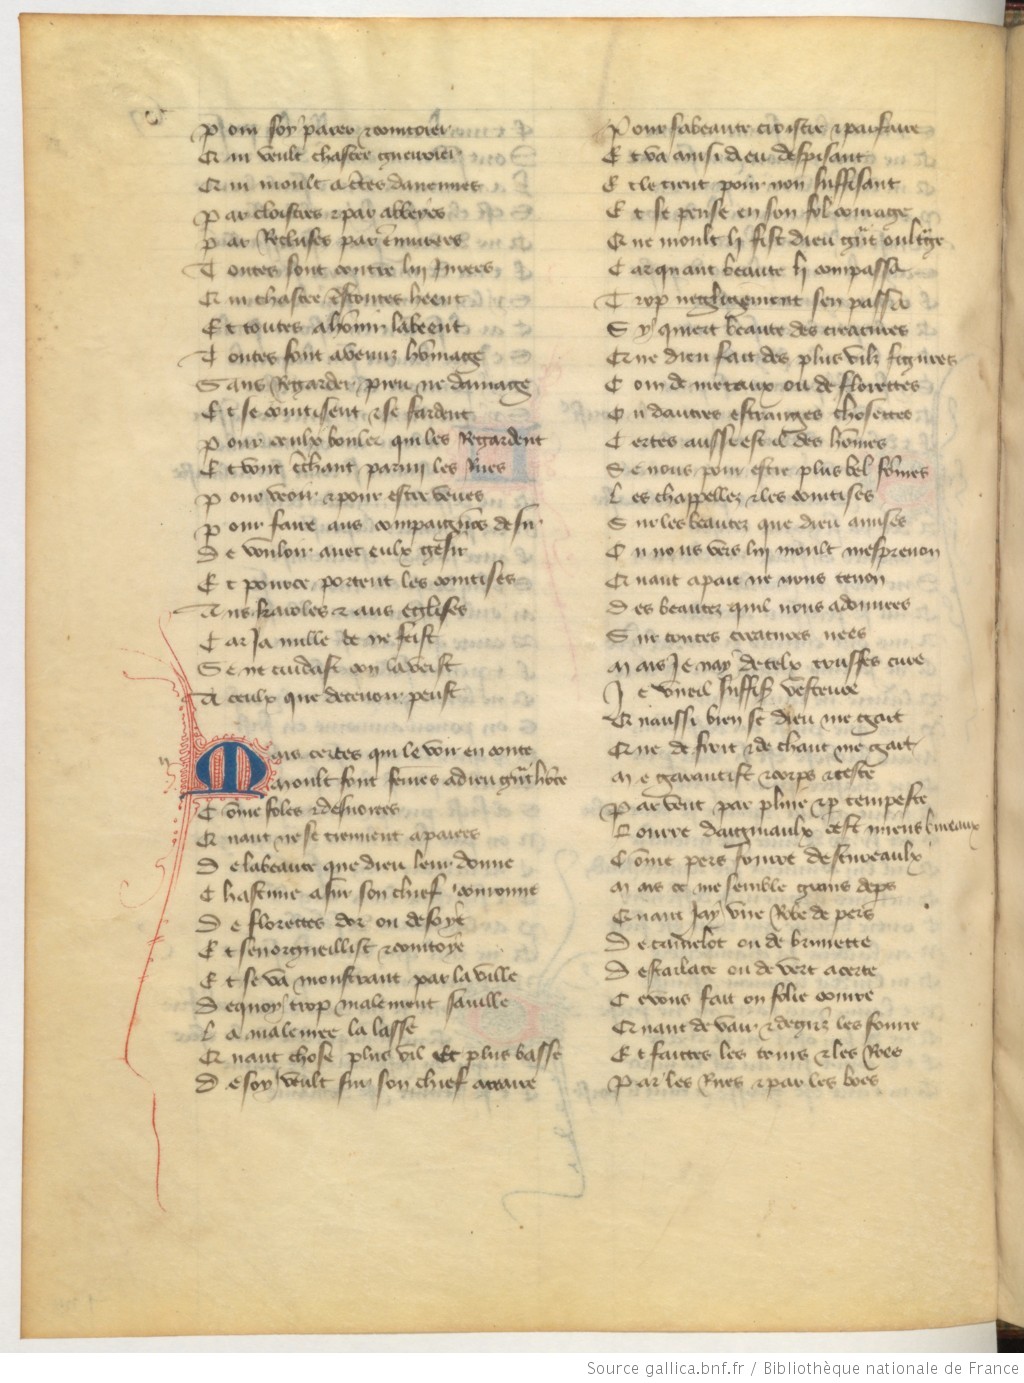 Pour soy parer et cointoier
Qui veult chastee guerroier
Qui moult a certes d'anemies
Par cloistres et par abbeyes
Par Recluses par
Toutes sont contre luy
Qui chastee
Et toutes a honnir labeent
Toutes font a venuz hommage
Sans Regarder preu ne dammage
Et se cointisent et se fardent
Pour ceulx bouler qui les Regardent
Et vont cerchant parmy les Rues
Pour veoir et pour estre veues
Pour faire aus compaignons desir
De vouloir avec eulx gesir
Et pour ce portent les cointises
Aus karoles et aus eglises
Car Ja nulle ce ne feist
Se ne cuidast con la veist
A ceulx que decevoir peust
Mais certes qui le voir en conte
Moult font femes a dieu grant honte
Comme foles et desvoiees
Quant ne se tiennent a paiees
De la beaute que dieu leur donne
Chascune a sur son chief couronne
De florettes dor ou de soye
Et senorgueillist et cointoye
Et se va monstrant par la ville
De quoy trop malement saville
La maleuree la lasse
Quant chose plus vil Et plus basse
De soy veult sur son chief atraire
Pour sa beaute croistre et parfaire
Et va ainsi dieu despisant
Et le tient pour non suffisant
Et se pense en son fol courage
Que moult li fist dieu grant oultrage
Car quant beaute li compassa
Trop negligemment sen passa
Sy quiert beaute des creatures
Que dieu fait des plus vilz figures
Com de metaux ou de florettes
Ou dautres estranges chosettes
Certes aussi est il des hommes
Se nous pour estre plus bel sommes
Les chappellez et les cointises
Sur les beautez que dieu a mises
En nous vers luy moult mesprenon
Quant a paie ne nous tenon
Des beautez quil nous a donnees
Sur toutes creatures nees
Mais Je nay de telx truffes cure
Je vueil souffisant vesteure
Qui aussi bien se dieu me gart
Que de froit et de chaut me gart
Me garantist et corps et teste
Par vent par pluie et par tempeste
Fourre daigniaulx cest miens bureaux
Comme pers fourre descureaulx
Mais ce me semble grans
Quant Jay une Robe de pers
De camelot ou de brunette
Descarlate ou de vert acerte
Et de vair et de gris les fourre
Et faictes les tours et les Roes
Par les Rues et par les boes